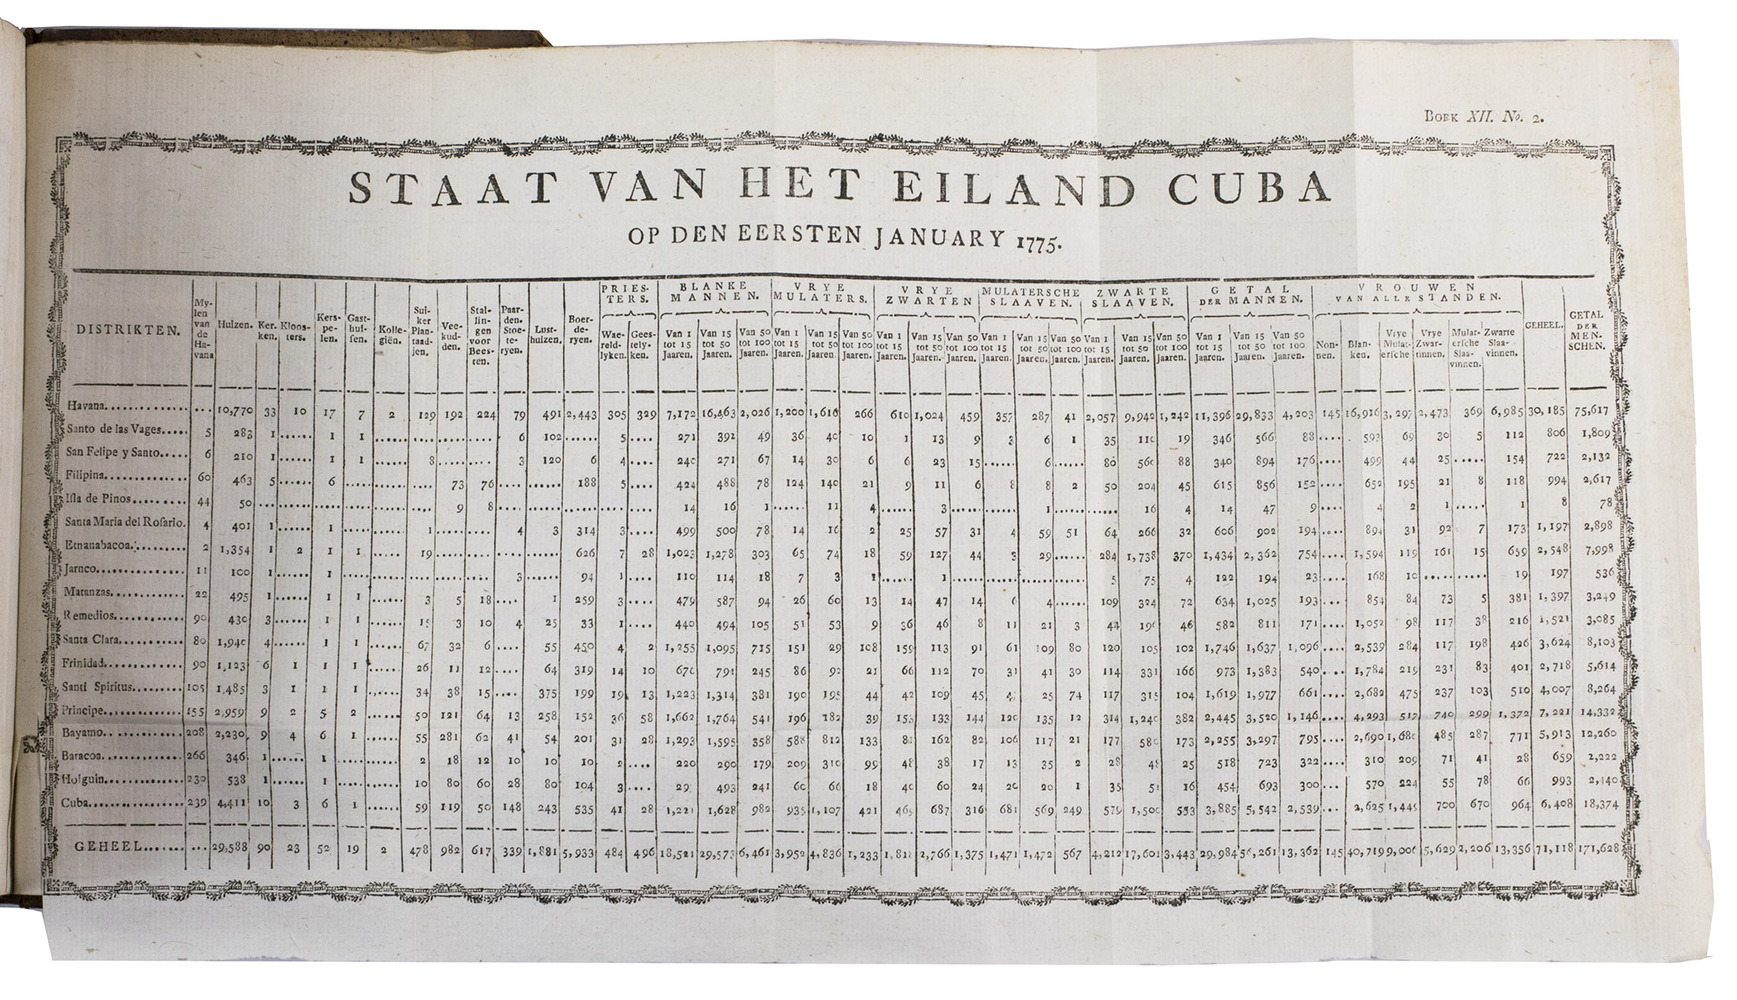 BOEK XII. No. 2.
STAAT VAN HET EILAND CUBA
OP DEN EERSTEN JANUARY 1775.
DISTRIKTEN. Mylen van de Havana Huizen. Kerken. Kloosters. Kerspelen. Gasthuisen. Kollegiën. Suiker Plantaadjen. Veekudden. Stallingen voor Beesten. Paarden-Stoeteryen. Lusthuizen. Boerderyen. PRIESTERS. BLANKE MANNEN. VRYE MULATERS. VRYE ZWARTEN MULATERSCHE SLAAVEN. ZWARTE SLAAVEN. GETAL DER MANNEN. VROUWEN VAN ALLE STANDEN. GEHEEL. GETAL DER MENSCHEN.
Waereldlyken. Geestelyken. Van 1 tot 15 Jaaren. Van 15 tot 50 Jaaren. Van 50 tot 100 Jaaren. Van 1 tot 15 Jaaren. Van 15 tot 50 Jaaren. Van 50 tot 100 Jaaren. Van 1 tot 15 Jaaren. Van 15 tot 50 Jaaren. Van 50 tot 100 Jaaren. Van 1 tot 15 Jaaren. Van 15 tot 50 Jaaren. Van 50 tot 100 Jaaren. Van 1 tot 15 Jaaren. Van 15 tot 50 Jaaren. Van 50 tot 100 Jaaren. Van 1 tot 15 Jaaren. Van 15 tot 50 Jaaren. Van 50 tot 100 Jaaren. Nonnen. Blanken. Vrye Mulatersche Vrye Zwartinnen. Mulatersche Slaavinnen. Zwarte Slaavinnen.
Havana 10,770 33 10 17 7 2 129 192 224 79 491 2,443 305 329 7,172 16,463 2,026 1,200 1,610 266 610 1,024 459 357 287 41 2,057 9,942 1,242 11,396 29,833 4,203 145 16,916 3,297 2,473 369 6,985 30,185 75,617
Santo de las Vages 5 283 1 1 1 6 102 5 271 391 49 36 40 10 1 13 9 3 6 1 35 110 19 346 566 88 593 69 30 5 112 806 1,809
San Felipe y Santo 6 210 1 1 1 8 3 120 6 4 240 271 67 14 30 6 6 23 15 6 80 560 88 340 894 176 499 44 25 154 722 2,132
Filipina 60 463 5 6 73 76 188 5 424 488 78 124 140 21 9 11 6 8 8 2 50 204 45 615 856 152 652 195 21 8 118 994 2,617
Isla de Pinos 44 50 9 8 14 16 1 11 4 3 1 16 4 14 47 9 4 2 1 1 8 78
Santa Maria del Rosario. 4 401 1 1 1 4 3 314 3 499 500 78 14 16 2 25 57 31 4 59 51 64 266 32 606 902 194 894 31 92 7 173 1,197 2,898
Etnanabacoa 2 1,354 1 2 1 1 19 626 7 28 1,023 1,278 303 65 74 18 59 127 44 3 29 284 1,738 370 1,434 2,362 754 1,594 119 161 15 659 2,548 7,998
Jaruco 11 100 1 1 3 94 1 110 114 18 7 3 1 1 5 75 4 122 194 23 168 10 19 197 536
Matanzas 22 495 1 1 1 3 5 18 1 259 3 479 587 94 26 60 13 14 47 14 6 4 109 324 72 634 1,025 193 854 84 73 5 381 1,397 3,249
Remedios 90 430 3 1 1 15 3 10 4 25 33 1 440 494 105 51 53 9 36 46 8 11 21 3 44 196 46 582 811 171 1,052 98 117 38 216 1,521 3,085
Santa Clara 80 1,940 4 1 1 67 32 6 55 450 4 2 1,255 1,095 715 151 29 108 159 113 91 61 109 80 120 105 102 1,746 1,637 1,096 2,539 284 117 198 426 3,624 8,103
Frinidad 90 1,123 6 1 1 1 26 11 12 64 319 14 10 670 791 245 86 92 21 66 112 70 31 41 30 114 331 166 973 1,383 540 1,784 219 231 83 401 2,718 5,614
Santi Spiritus 105 1,485 3 1 1 1 34 38 15 375 199 19 13 1,223 1,314 381 190 195 44 42 109 45 25 74 117 315 104 1,619 1,977 661 2,682 475 237 103 510 4,007 8,264
Principe 155 2,959 9 2 5 2 50 121 64 13 258 152 36 58 1,662 1,764 541 196 182 39 153 133 144 120 135 12 314 1,240 382 2,445 3,520 1,146 4,293 517 740 299 1,372 7,221 14,332
Bayamo 208 2,230 9 4 6 1 55 281 62 41 54 201 31 28 1,293 1,595 358 588 812 133 81 162 82 106 117 21 177 580 173 2,255 3,297 795 2,690 1,680 485 287 771 5,913 12,260
Baracoa 266 346 1 1 2 18 12 10 10 10 2 220 290 179 209 310 99 48 38 17 13 35 2 28 48 25 518 723 322 310 209 71 41 28 659 2,222
Holguin 230 538 1 1 10 80 60 28 80 104 3 291 493 241 60 66 18 40 60 24 20 20 1 35 51 16 454 693 300 570 224 55 78 66 993 2,440
Cuba 239 4,411 10 3 6 1 59 119 50 148 243 535 41 28 1,221 1,628 982 935 1,107 421 469 687 316 681 569 249 579 1,500 553 3,885 5,542 2,539 2,625 1,449 700 670 964 6,408 18,374
GEHEEL 29,588 90 23 52 19 2 478 982 617 339 1,881 5,933 484 496 18,521 29,573 6,461 3,952 4,836 1,233 1,812 2,766 1,375 1,471 1,472 567 4,212 17,601 3,443 29,984 56,261 13,362 145 40,719 9,006 5,629 2,206 13,356 71,118 171,628